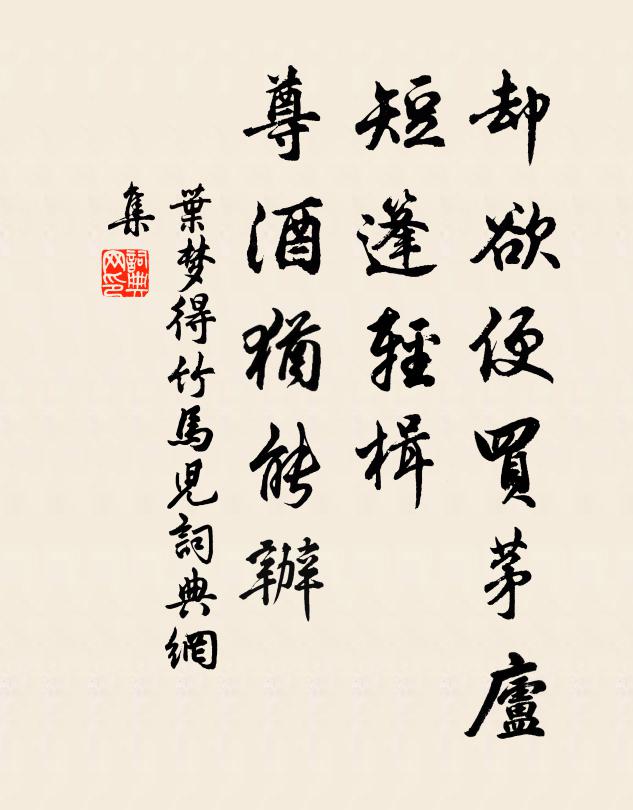 却欲便買茅廬
短篷輕楫
尊酒猶能辦
葉梦得竹馬児詞典網
集
詞典
网印